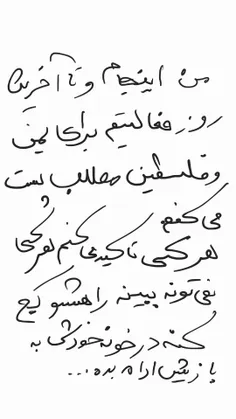 من اینجام و تا آخرین
روز فعالیتم برای یمن
و فلسطین مطلب پست
می‌کنم
هر کسی تاکید می‌کنم هر کسی
نمی‌تونه ببینه راهشو کج
کنه در خونه خودش به
بازیش ادامه بده...